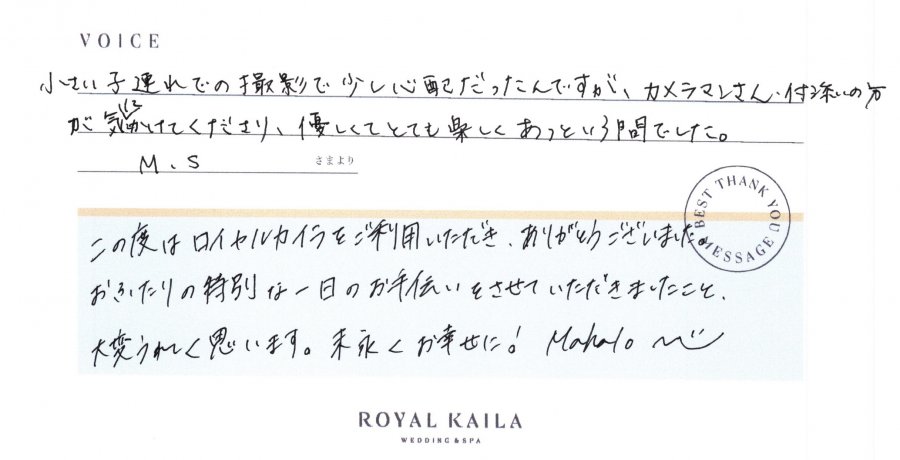 VOICE
小さい子連れでの撮影で少し心配だったんですが、カメラマンさん・付き添いの方
が気にかけてくださり、優しくてとても楽しくあっという間でした。
M.S さまより
BEST THANK YOU MESSAGE
この度はロイヤルカイラをご利用いただき、ありがとうございました。
おふたりの特別な一日のお手伝いをさせていただきましたこと、
大変うれしく思います。末永くお幸せに! Mahalo
ROYAL KAILA
WEDDING & SPA